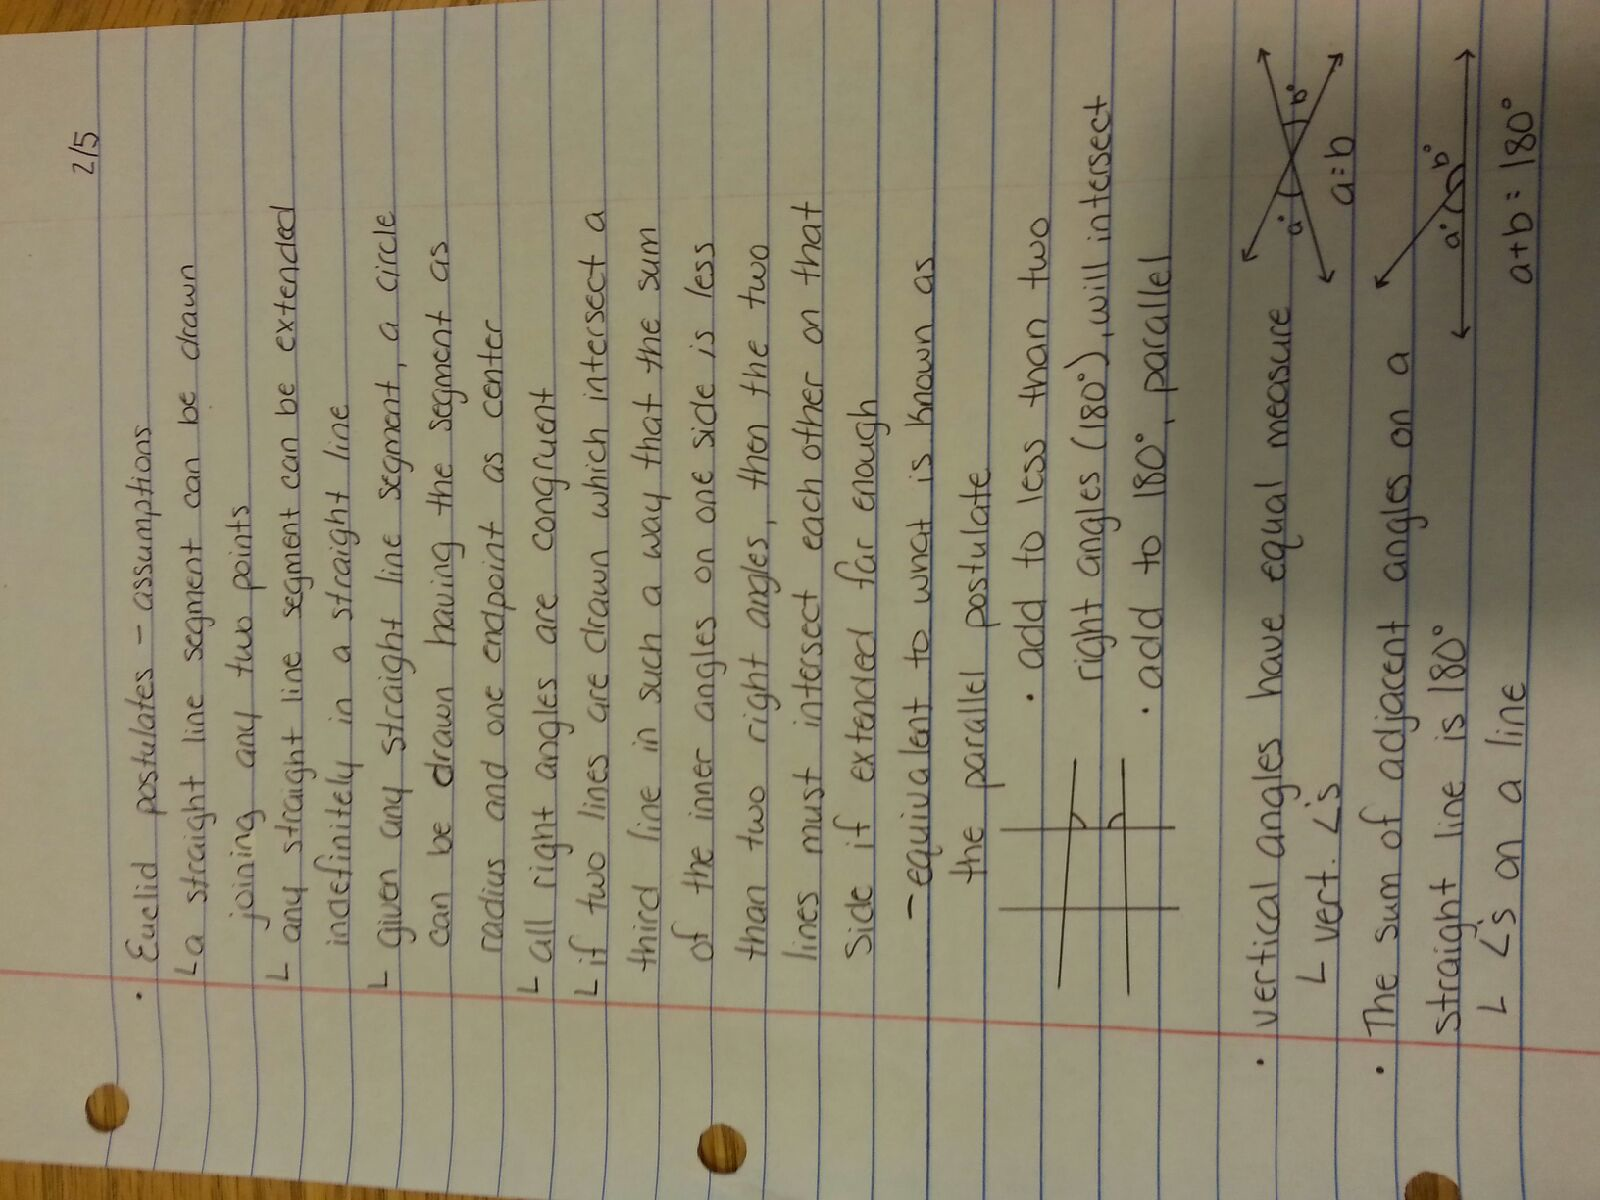 2/5
• Euclid postulates - assumptions
└ a straight line segment can be drawn
joining any two points
└ any straight line segment can be extended
indefinitely in a straight line
└ given any straight line segment, a circle
can be drawn having the segment as
radius and one endpoint as center
└ all right angles are congruent
└ if two lines are drawn which intersect a
third line in such a way that the sum
of the inner angles on one side is less
than two right angles, then the two
lines must intersect each other on that
side if extended far enough
- equivalent to what is known as
the parallel postulate
• add to less than two
right angles (180°), will intersect
• add to 180°, parallel
• vertical angles have equal measure
└ vert. ∠'s
a° b°
a=b
• The sum of adjacent angles on a
straight line is 180°
└ ∠'s on a line
a° b°
a+b=180°